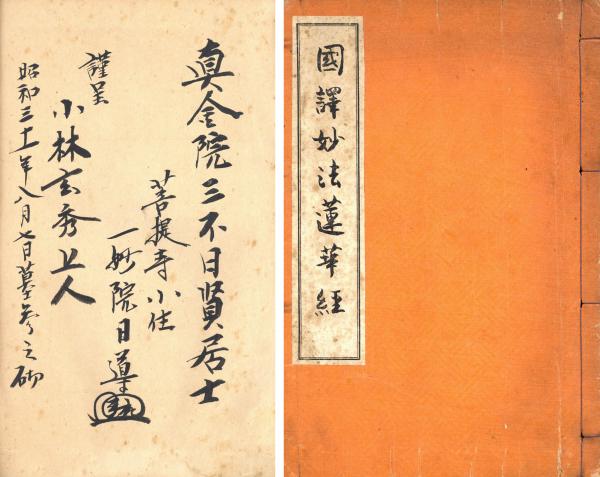 真金院三不日賢居士
菩提寺小住
一妙院日導
謹呈
小林玄秀上人
昭和三十一年八月七日墓参之砌
國譯妙法蓮華經